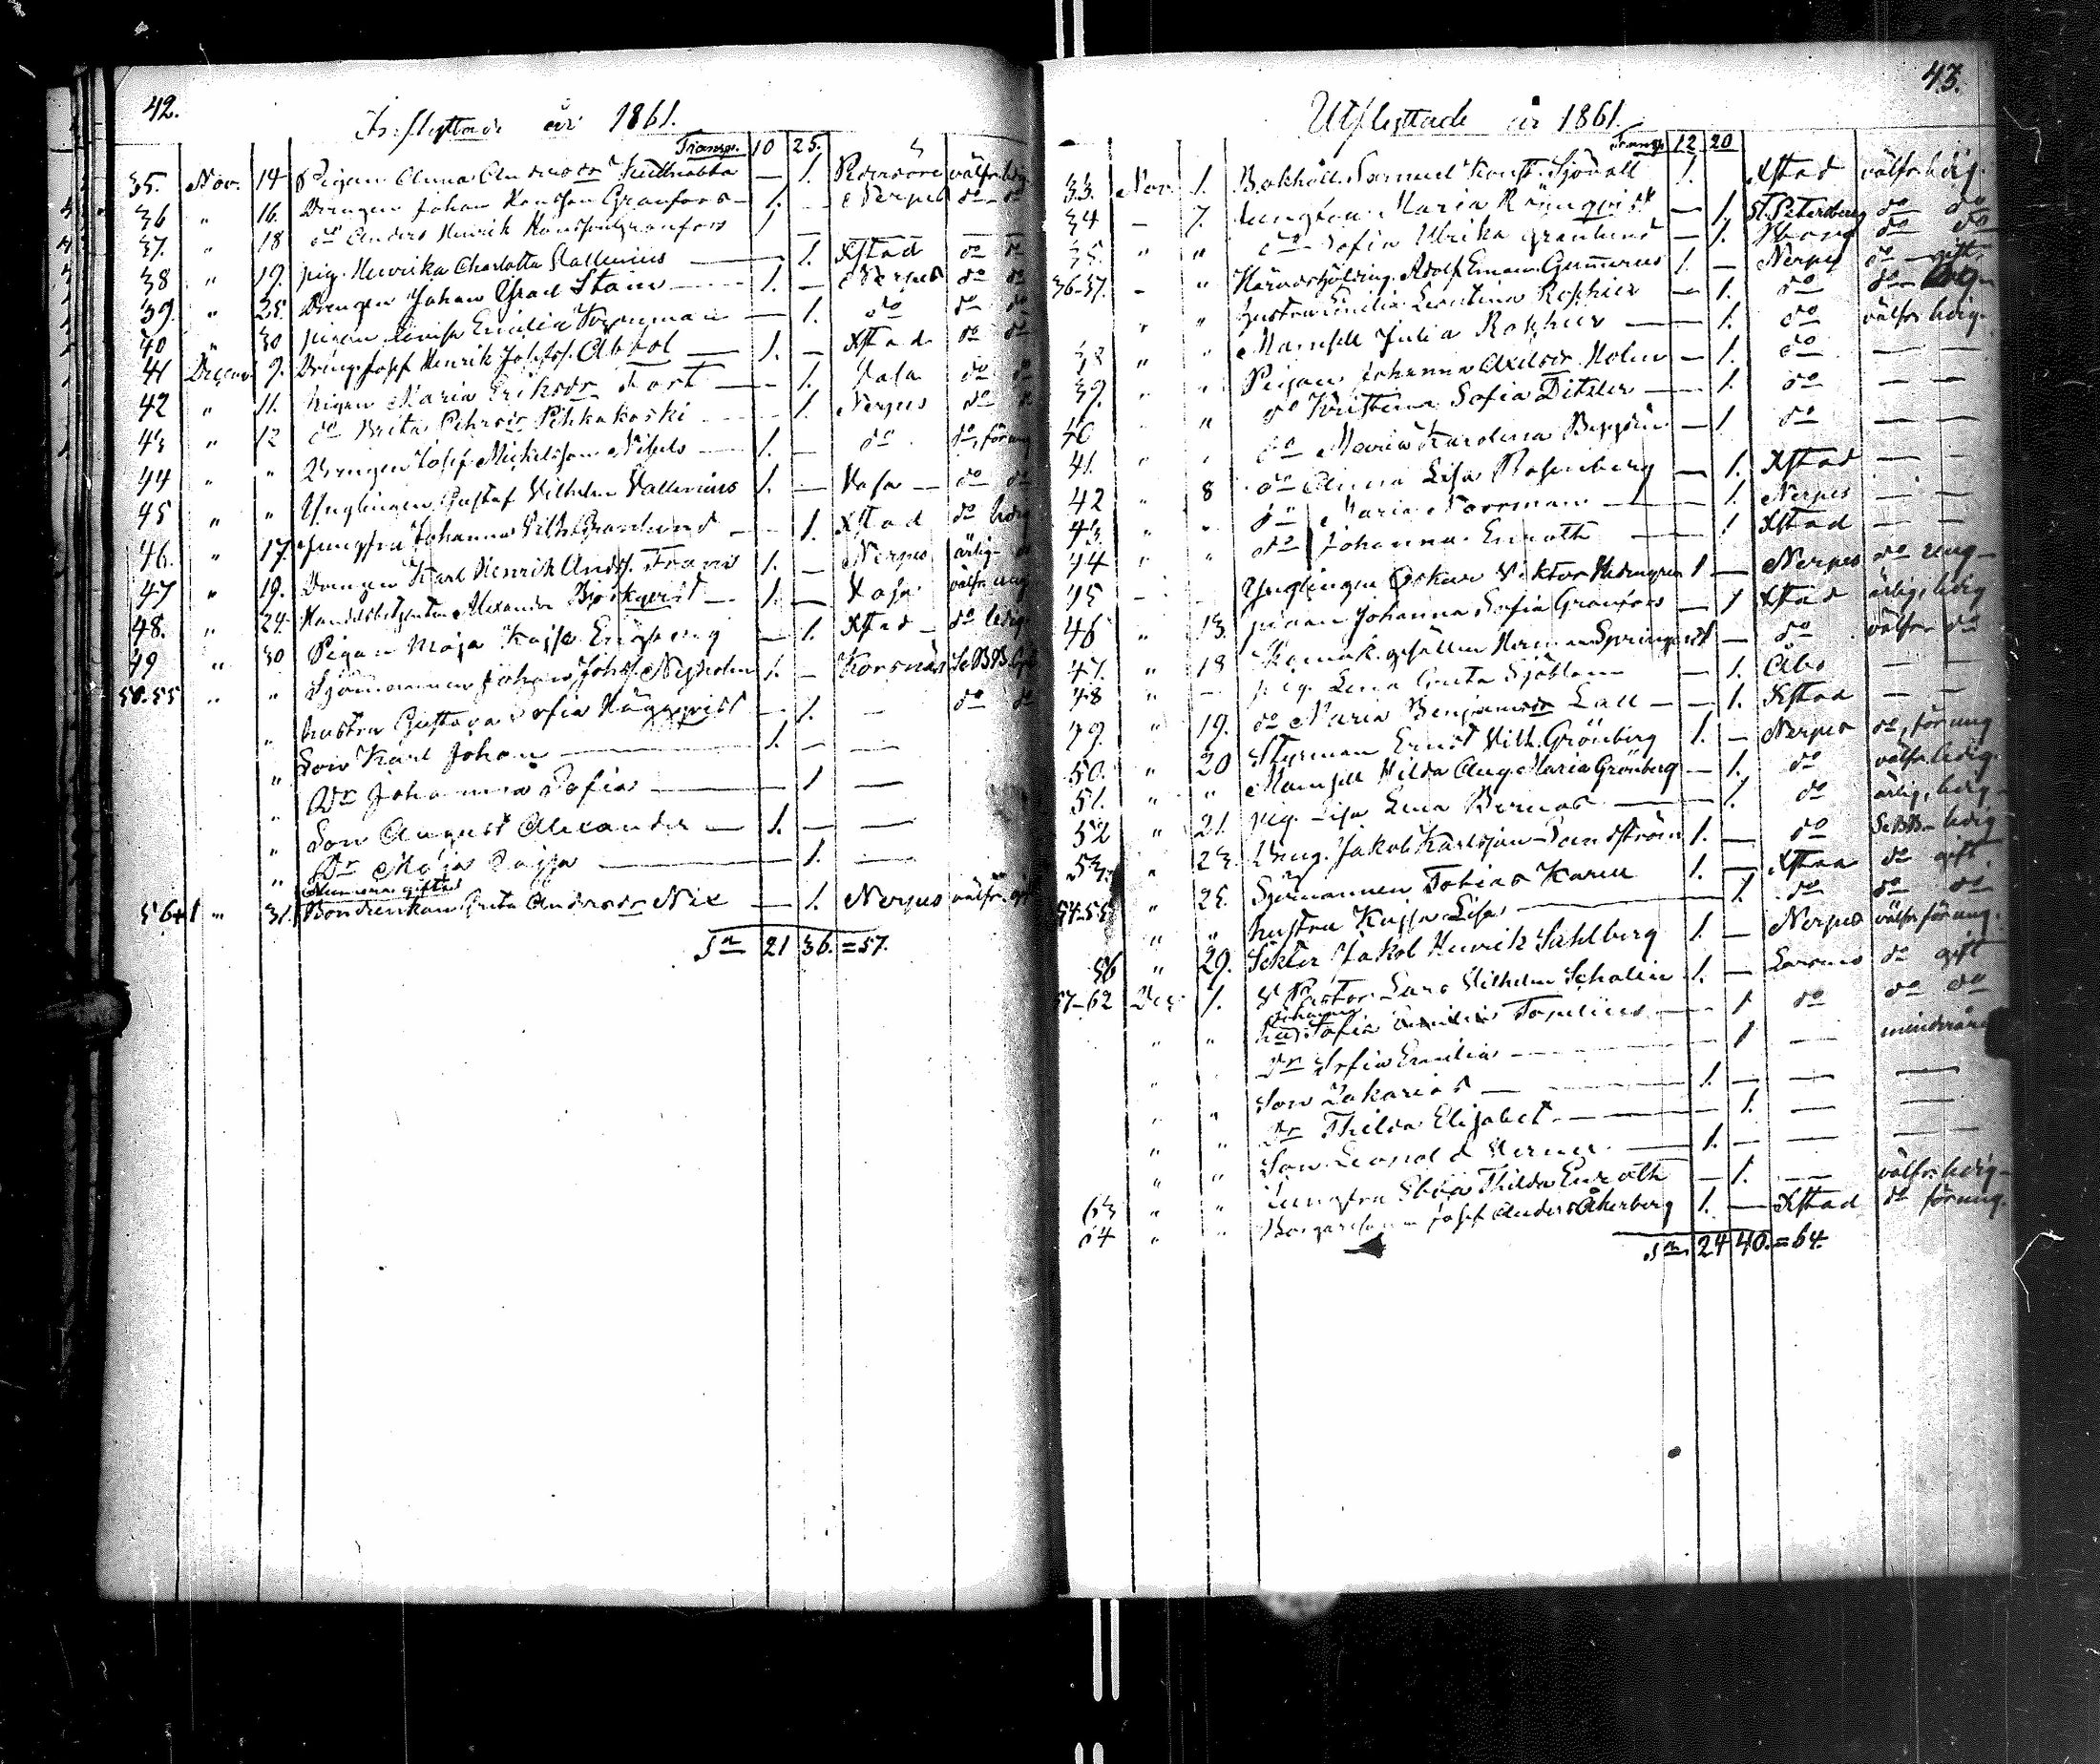 42.
Inflyttade år 1861.
Transp. 10 25.
35. Nov. 14 Pigan Anna Andersdr — 1. välfr. ledig
36 " 16. Drengen Johan Hansson Granfors — 1. — Nerpes do do
37. " 18 do Anders Henrik Hansson Granfors 1 — — —
38 " 19. pig. Henrika Charlotta Wallenius — 1. Xstad do do
39. " 25. Drengen Johan Stain — 1. — Nerpes do do
40 " 30 pigan Lovisa Emilia Norrman — 1. do do do
41 Decemb 9. Dreng. Josef Henrik Josefss. Abbol — 1. — Xstad do do
42 " 11. Pigan Maria Eriksdr Fort — 1. Vasa do do
43 " 12 do Brita Pehrsdr Pihkakoski — 1. Nerpes do
44 " " Drengen Josef Mickelsson 1. — do do, för ung
45 " " Ynglingen Gustaf Vilhelm Wallenius 1. — Vasa — do do
46. " 17. Jungfru Johanna Vilh. Granlund — 1. Xstad do ledig
47 " 19. Drengen Karl Henrik Anders. Frans 1. — Nerpes ärlig
48. " 24. Handelsbetjenten Alexander Björkqvist — 1. — Vasa välfr. ung
49 " 30 Pigan Maja Kajsa Engberg — 1. Xstad — do ledig
50-55 " " Sjömannen Johan Johss. Nyholm 1. — Korsnäs
" Hustru Gustava Sofia Häggqvist — 1. — do do
" Son Karl Johan — 1. — —
" Dr Johanna Sofia — 1 —
" Son August Alexander — 1. — —
" Dr Maja Kajsa — 1. —
56+1 " 31. Bondenkan Greta Andersdr Nix — 1. Nerpes välfr.
Sa 21 36. = 57.
43.
Utflyttade år 1861.
Transp. 12 20
33. Nov. 1. Bokhåll. Samuel Konst. Sjövall 1. Xstad välfr. ledig.
34 — 7. Jungfru Maria Rönnqvist — 1. St. Petersburg do do
35. " " do Sofia Ulrika Granlund — 1. do do
36-37. — " Häradshöfding Adolf Eman. Gummerus 1. — Nerpes do gift.
" " Hustru Emilia Leontina Roschier — 1. do do
38 " " Mamsell Julia Roschier — 1. do välfr. ledig.
39. " " Pigan Johanna Axelsdr Holm — 1. do — —
40 " " do Kristina Sofia Ditzler — 1. do — —
41. " " do Maria Karolina — 1 do — —
42 " 8 do Anna Lisa Rosenberg — 1. Xstad — —
43. " " do Maria Norrman — 1. Nerpes — —
44 " " do Johanna Enroth — 1 Xstad — —
45 — — Ynglingen Oskar Viktor Hedengren 1 — Nerpes do ung
46 " 13. pigan Johanna Sofia Granfors — 1 Xstad ärlig, ledig
47. " 18 gesällen Herman Springert 1 — do välfr. do
48 " — pig. Lena Greta Sjöblom — 1. Åbo — —
49. " 19. do Maria Benjamsdr Lall — 1. Xstad — —
50. " 20 Styrman Ernst Vilh. Grönberg 1. — Nerpes do, för ung
51. " " Mamsell Hilda Aug. Maria Grönberg — 1. do välfr. ledig.
52 " 21. pig. Lisa Lena Bernas — 1. do ärlig, ledig
53. " 23. Dreng. Jakob Karlsson Sandström 1. — do ledig
54-55 " 25. Sjömannen Tobias Karen 1. — Xstad do gift
" " Hustru Kajsa Lisa — 1. do do do
56 " 29. Jakob Henrik Sahlberg 1. — Nerpes välfr. för ung.
57-62 Dec. 1. V Pastor Lars Vilhelm Schalin 1. — Larsmo do gift
" " Hust. Sofia Johanna Forselius — 1 do do do
" " Dr Sofia Emilia — 1 — minderårig
" " Son Zakarias — 1. — — —
" " Dr Thilda Elisabet — 1. — —
" " Son Leonard Verner — 1. — — —
63 " " Jungfru Thilda Enroth — 1. — välfr. ledig
64 " " Borgaresonen Josef Anders Åkerberg 1. — Xstad do för ung.
Sa. 24 40. = 64.